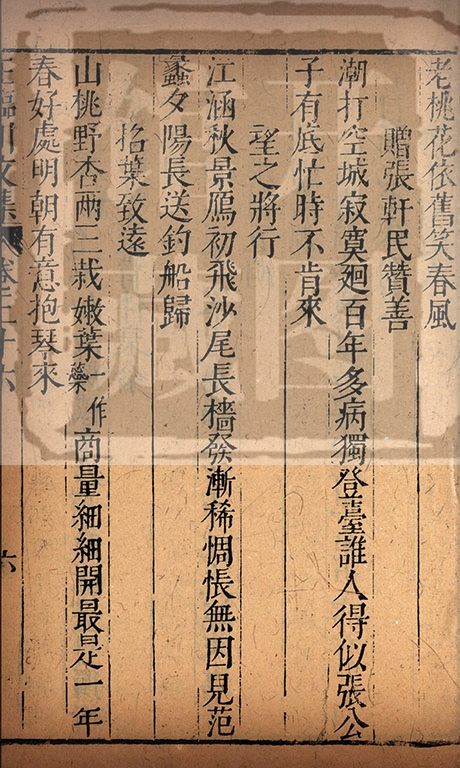 老桃花依舊笑春風
贈張軒民贊善
潮打空城寂寞廻百年多病獨登臺誰人得似張公
子有底忙時不肯來
望之將行
江涵秋景鴈初飛沙尾長檣發漸稀惆悵無因見范
蠡夕陽長送釣船歸
招葉致遠
山桃野杏兩三栽嫩葉一作蘂商量細細開最是一年
春好處明朝有意抱琴來
王臨川文集 卷三十六 六